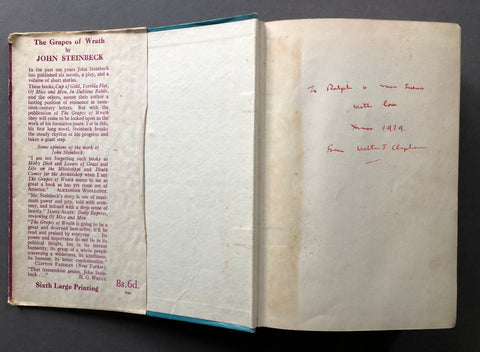 The Grapes of Wrath
by
JOHN STEINBECK
In the past ten years John Steinbeck
has published six novels, a play, and a
volume of short stories.
These books, Cup of Gold, Tortilla Flat,
Of Mice and Men, In Dubious Battle,
and the others, assure their author a
lasting position of eminence in twen-
tieth-century letters. But with the
publication of The Grapes of Wrath
they will come to be looked upon as the
work of his formative years. For in this,
his first long novel, Steinbeck breaks
the steady rhythm of his progress and
takes a giant step.
Some opinions of the work of
John Steinbeck:
"I am not forgetting such books as
Moby Dick and Leaves of Grass and
Life on the Mississippi and Death
Comes for the Archbishop when I say
The Grapes of Wrath seems to me as
great a book as has yet come out of
America." ALEXANDER WOOLLCOTT.
"Mr. Steinbeck's story is one of maxi-
mum power and pity, told with econ-
omy, and imbued with a deep sense of
beauty." JAMES AGATE: Daily Express,
reviewing Of Mice and Men.
"The Grapes of Wrath is going to be a
great and deserved best-seller, it'll be
read and praised by everyone . . . Its
power and importance do not lie in its
political insight, but in its intense
humanity, its grasp of a whole people
traversing a wilderness, its kindliness,
its humour, its bitter condemnation."
CLIFTON FADIMAN (New Yorker).
"That tremendous genius, John Stein-
beck . . ." H. G. WELLS.
Sixth Large Printing
8s.6d.
To Ralph & Mrs
With love
Xmas 1939.
From